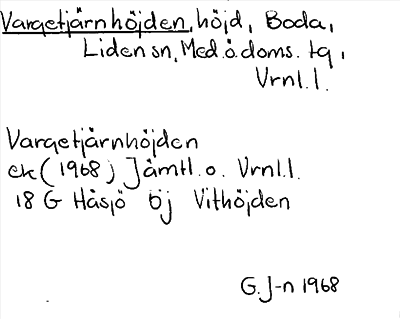 Vargetjärnhöjden, höjd, Boda,
Liden sn, Med.o.doms. tg,
Vrnl.l.
Vargetjärnhöjden
ek (1968) Jämtl. o. Vrnl.l.
18 G Håsjö öj Vithöjden
G. J-n 1968